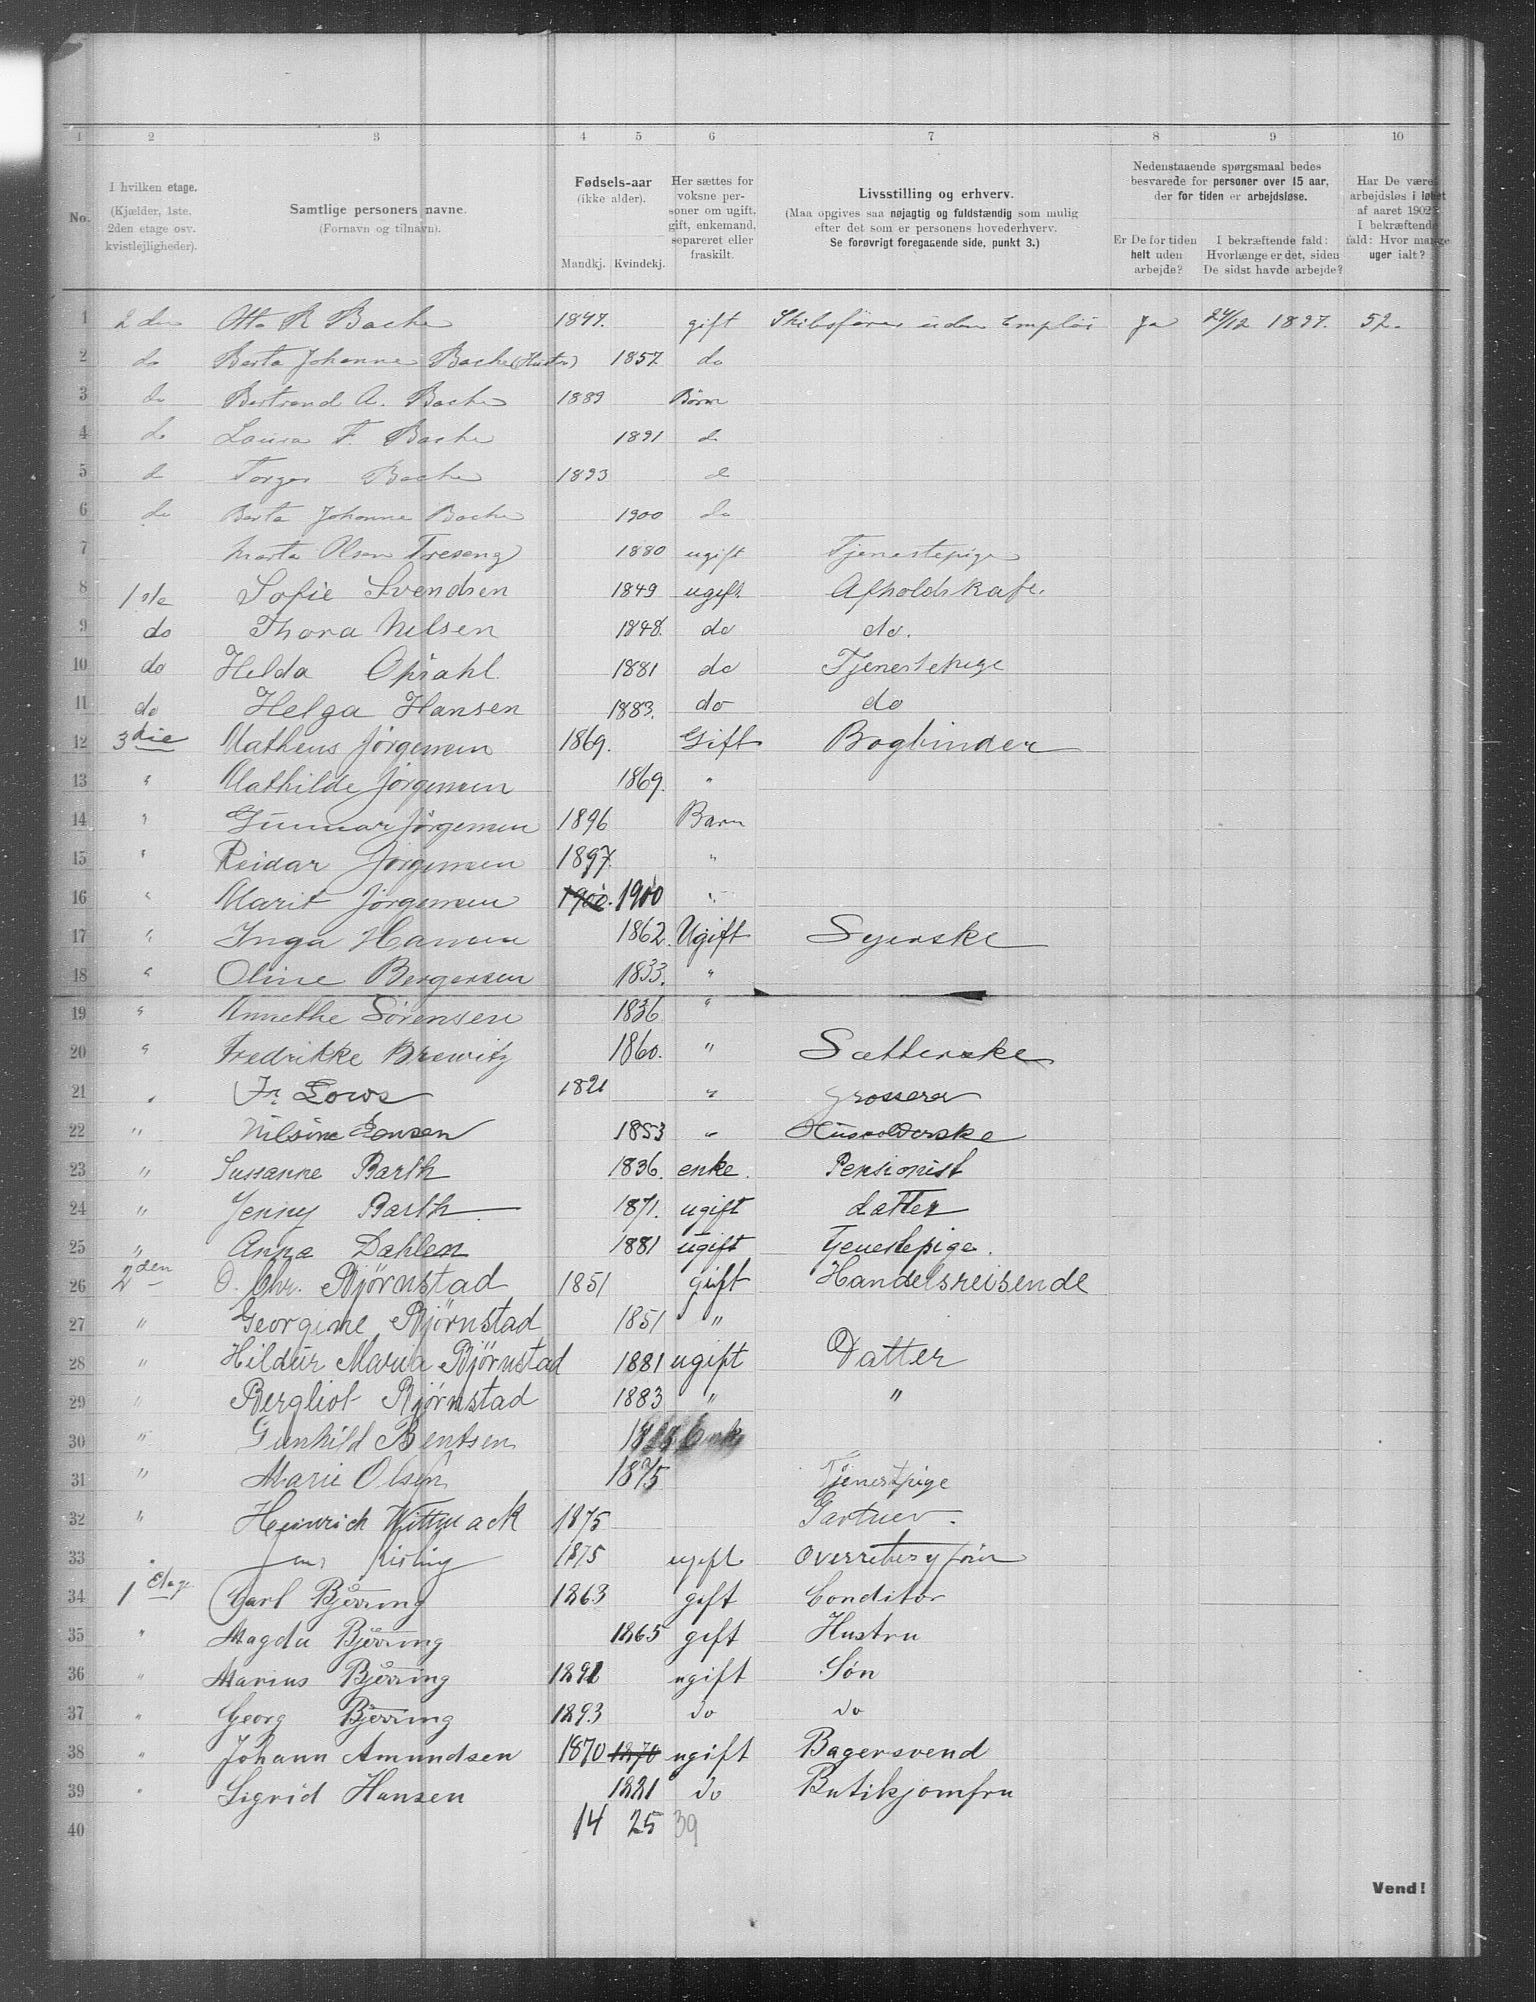 1 2 3 4 5 6 7 8 9 10
No.
I hvilken etage. (Kjælder, 1ste, 2den etage osv. kvistlejligheder).
Samtlige personers navne. (Fornavn og tilnavn).
Fødsels-aar (ikke alder). Mandkj. Kvindekj.
Her sættes for voksne personer om ugift, gift, enkemand, separeret eller fraskilt.
Livsstilling og erhverv. (Maa opgives saa nøjagtig og fuldstændig som mulig efter det som er personens hovederhverv. Se forøvrigt foregaaende side, punkt 3.)
Nedenstaaende spørgsmaal bedes besvarede for personer over 15 aar, der for tiden er arbejdsløse.
Er De for tiden helt uden arbejde?
I bekræftende fald: Hvorlænge er det, siden De sidst havde arbejde?
Har De været arbejdsløs i løbet af aaret 1902? I bekræftende fald: Hvor mange uger ialt?
1 2 den Otto R Bache 1847. gift Skibsfører uden Emploi Ja 24/12 1897. 52.
2 do Berta Johanne Bache (Hustru) 1857 do
3 do Bertrand A. Bache 1889 Børn
4 do Laura F. Bache 1891 do
5 do Torger Bache 1893 do
6 do Berta Johanne Bache 1900 do
7 Marta Olsen Treseng 1880 ugift Tjenestepige
8 1ste Sofie Svendsen 1849 ugift Afholdskafe.
9 do Thora Nilsen 1848. do do.
10 do Helda Opsahl. 1881 do Tjenestepige
11 do Helga Hansen 1883. do do
12 3die Matheus Jørgensen 1869. Gift Bogbinder
13 " Mathilde Jørgensen 1869. "
14 " Gunnar Jørgensen 1896 Barn
15 " Reidar Jørgensen 1897. "
16 " Marit Jørgensen 1900. 1900 "
17 " Inga Hansen 1862. Ugift Syerske
18 " Oline Bergersen 1833. "
19 " Annethe Sørensen 1836 "
20 " Fredrikke Brewitz 1860. " Sætterske
21 " Fr. Lows 1821 " Grosserer
22 " Nilsine Jensen 1853 " Husholderske
23 " Sussanne Barth 1836. enke. Pensionist
24 " Jenny Barth 1871. ugift datter
25 " Anna Dahlen 1881 ugift Tjenestepige.
26 2den O. Chr. Bjørnstad 1851 gift Handelsreisende
27 " Georgine Bjørnstad 1851 "
28 " Hildur Maria Bjørnstad 1881 ugift Datter
29 " Bergliot Bjørnstad 1883 " "
30 " Gunhild Bentsen Enke
31 " Marie Olsen 1875 Tjenestpige
32 " Heinrich Wittmack 1875 Gartner.
33 " Kisling 1875 ugift
34 1 Etage Carl Bjerring 1863 gift Conditor
35 " Magda Bjerring 1865 gift Hustru
36 " Marius Bjerring 1891 ugift Søn
37 " Georg Bjerring 1893 do do
38 " Johann Amundsen 1870 1870 ugift Bagersvend
39 " Sigrid Hansen 1881 do Butikjomfru
40 14 25 39
Vend!